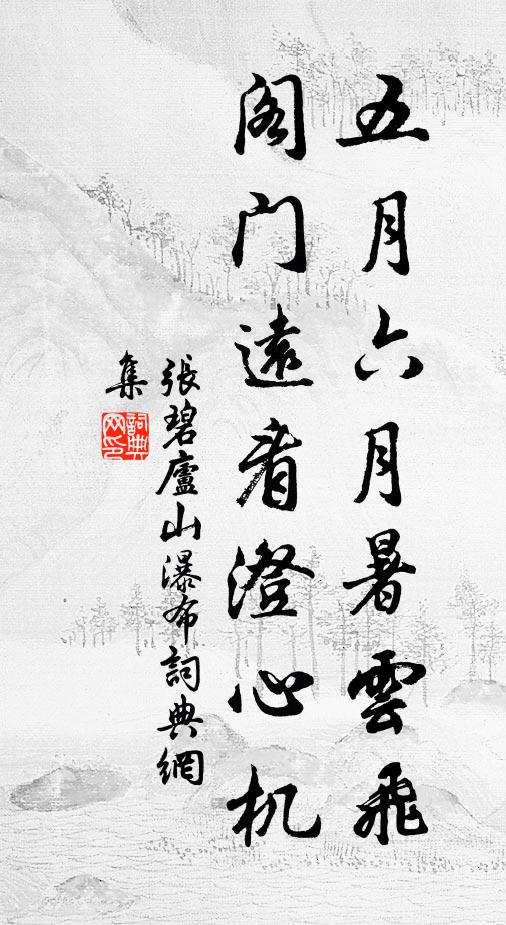 五月六月暑雲飛
阁门遠看澄心机
張碧廬山瀑布詞典網
集
詞典网印